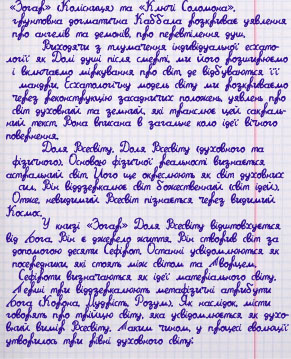 «Зогар» (Колісниця) та «Ключі Соломона».
Ґрунтовна догматична Каббала розкриває уявлення
про ангелів та демонів, про перевтілення душ.
Виходячи з тлумачення індивідуальної есхато-
логії як Долі душі після смерті, ми його розширюємо
і включаємо міркування про світ, де відбуваються її
мандри. Есхатологічну модель світу ми розкриваємо
через реконструкцію засадничих положень, уявлень про
світ духовний та земний, які транслює цей сакраль-
ний текст. Вона вписана в загальне коло ідеї вічного
повернення.
Доля Всесвіту. Доля Всесвіту (духовного та
фізичного). Основою фізичної реальності визнається
астральний світ. Його ще окреслюють як світ духовних
сил. Він віддзеркалює світ божественний (світ ідей).
Отже, невидимий Всесвіт пізнається через видимий
Космос.
У книзі «Зогар» Доля Всесвіту відштовхується
від Бога. Він є джерело життя. Він створив світ за
допомогою десяти Сефірот. Останні усвідомлюються як
посередники, які стоять між світом та Творцем.
Сефіроти визначаються як ідеї матеріального світу.
Перші три віддзеркалюють метафізичні атрибути
Бога (Корона, Мудрість, Розум). Як наслідок, містики
говорять про тріицю світу, яка усвідомлюється як духов-
ний вимір Всесвіту. Таким чином, у процесі еволюції
утворилось три рівні духовного світу: